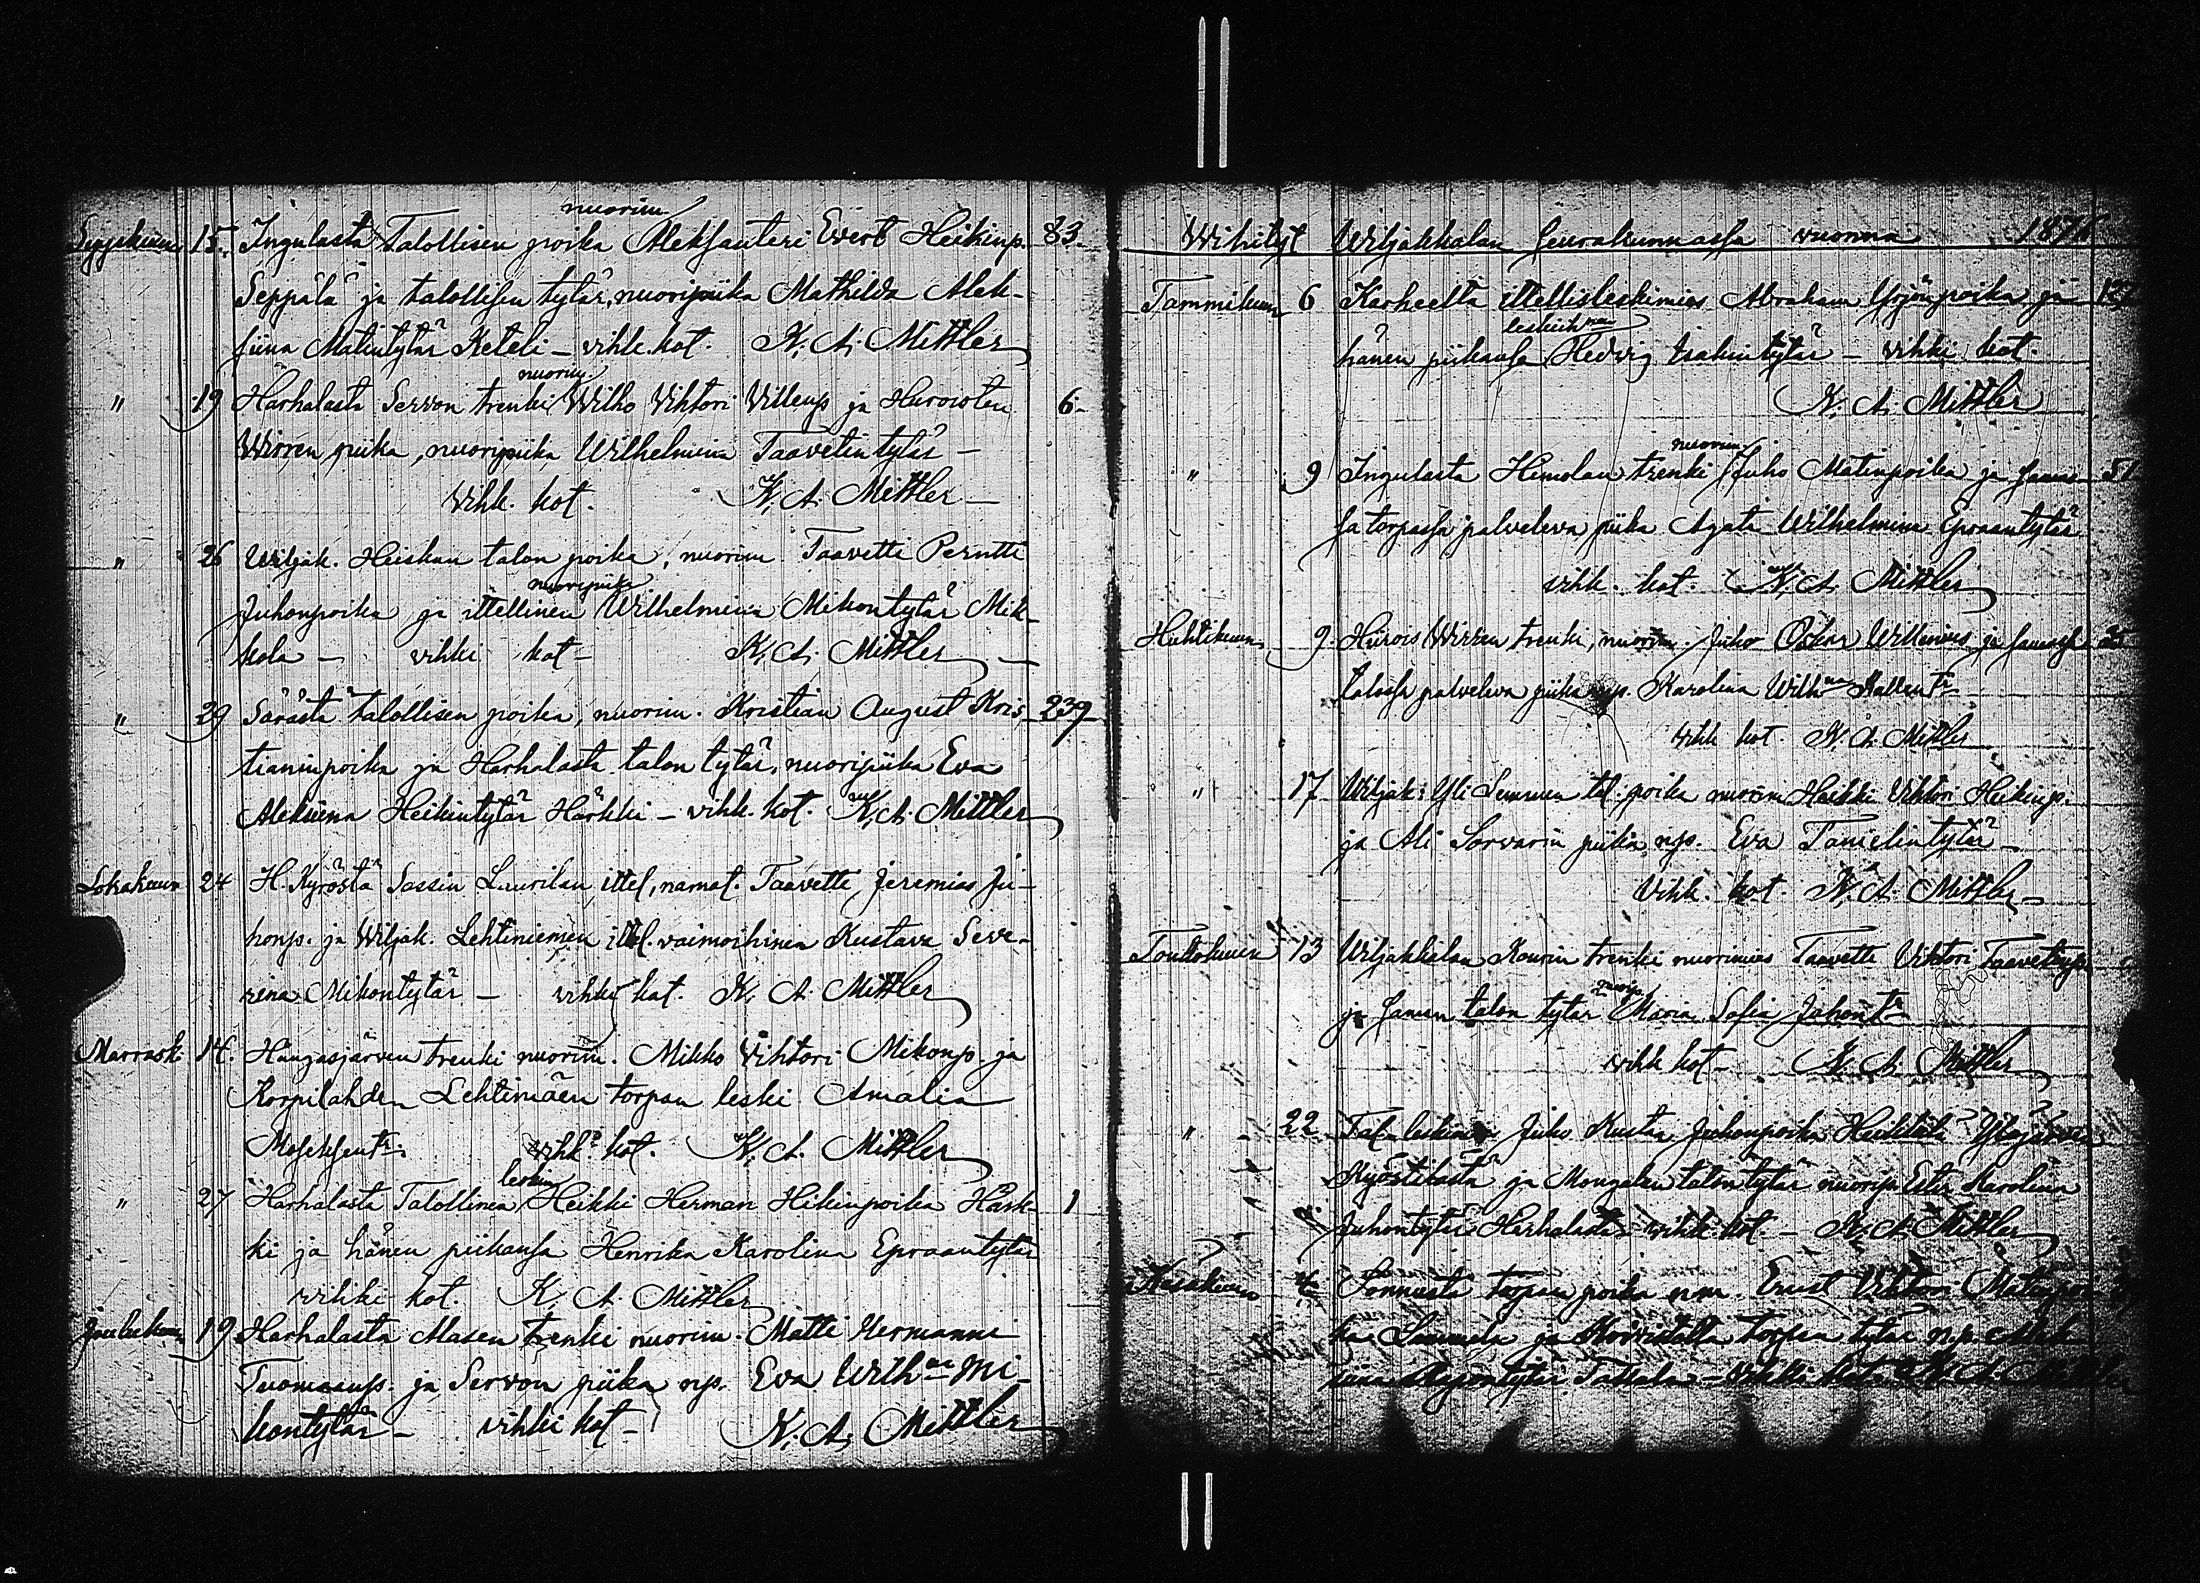 nuorim
Syyskuun 15. Ingulasta Talollisen poika Aleksanteri Evert Heikinp. 83.
Seppälä ja talollisen tytär, nuoripiika Mathilda Alek-
siina Matintytär Keteli - vihk. kot. K. A. Mittler
nuorim
" 19 Harhalasta Servon trenki Wilho Vihtori Villenp ja Huroisten 6.
Wirren piika, nuoripiika Wilhelmiina Taavetintytär -
vihk. kot. K. A. Mittler -
" 26 Wiljak. Heiskan talon poika, nuorim Taavetti Pertti
nuoripiika
Juhonpoika ja ittellinen Wilhelmina Mikontytär Mik-
kola - vihki kot - K. A. Mittler -
" 29 Särästä talollisen poika, nuorim. Kristian August Kris- 239
tianinpoika ja Harhalasta talon tytär, nuoripiika Eva
Aleksiina Heikintytär Härkki - vihk. kot. K. A. Mittler
Lokakuun 24 H. Kyröstä Sassin Laurilan ittel. namat. Taavetti Jeremias Ju-
honp. ja Wiljak. Lehtiniemen ittel. vaimoihinen Kustava Seve-
rina Mikontytär - vihki kot. K. A. Mittler
Marrask. 14. Hangasjärven trenki nuorim. Mikko Vihtori Mikonp. ja
Korpilahden Lehtimäen torpan leski Amalia
Moseksentr. vihk. kot. K. A. Mittler
leskim
" 27 Harhalasta Talollinen Heikki Herman Heikinpoika Härk- 1
ki ja hänen piikansa Henrika Karolina Epraantytär
vihki kot. K. A. Mittler
Joulukuun 19 Harhalasta Masen trenki nuorim. Matti Hermanni
Tuomaanp. ja Servon piika np. Eva Wilhna Mi-
kontytär - vihki kot - K. A. Mittler
Wihityt Wiljakkalan seurakunnassa vuonna 187
Tammikuun 6 Karheelta ittellisleskimies Abraham Yrjönpoika ja
leskiihnen
hänen piikansa Hedvig Isakintytär - vihki kot.
K. A. Mittler
nuorim.
" 9 Ingulasta Himolan trenki Juho Matinpoika ja samas- 51
sa torpassa palveleva piika Agata Wilhelmina Epraantytär
vihk. kot. K. A. Mittler
Huhtikuun 9. Hurois Wirren trenki, nuorim. Juho Oskar Willenius ja samassa
talossa palveleva piika np. Karolina Wilhna Kallentr
vihk kot K. A. Mittler
" 17 Wiljak: Yli Semmen tal. poika nuorim Heikki Vihtori Heikinp.
ja Ali Sorvarin piika np. Eva Tanielintytär -
Vihk. kot. K. A. Mittler -
Toukokuun 13 Wiljakkalan Kourin trenki nuorimies Taavetti Vihtori Taavetinp.
nuorip
ja saman talon tytär Maria Sofia Juhontr
vihk kot - K. A. Mittler
" 22 Tal. leskimies Juho Kustaa Juhonpoika Heikkilä Ylöjärven
Kyöstilästä ja Mongalen talon tytär nuorip Ester Karolina
Juhontytär Harhalasta vihk. kot. - K. A. Mittler
Kesäkuun 4 torpan poika n.m. Ernst Vihtori Matinpoi-
ka ja torpan tytär n.p. Alek-
siina - vihki kot. K. A. Mittler